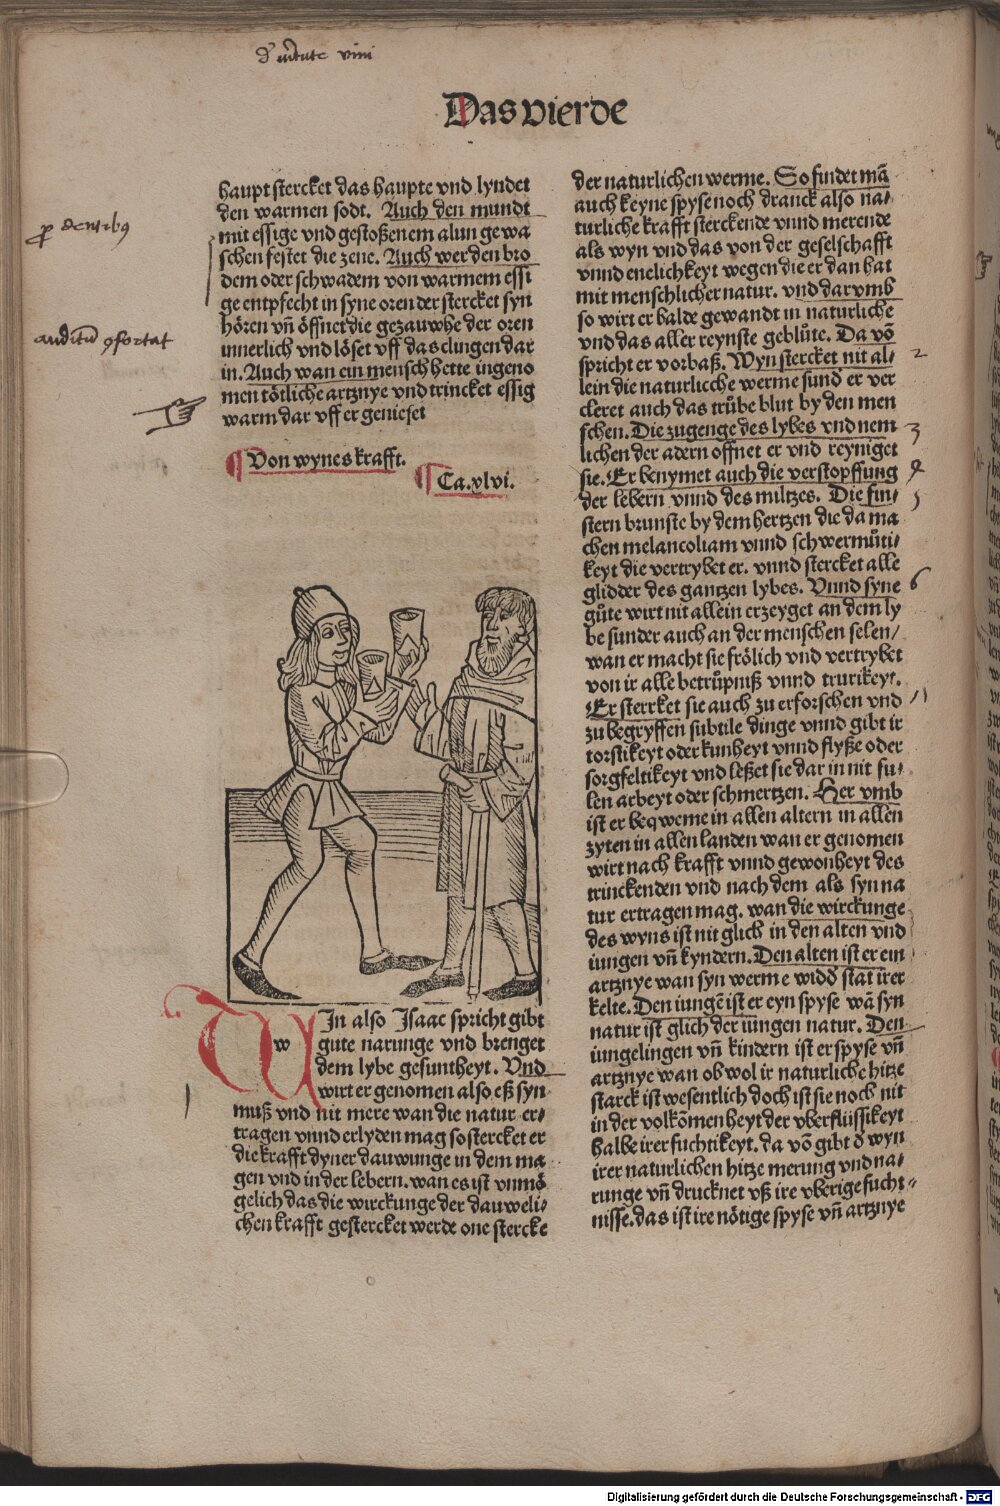 Das vierde
haupt stercket das haupte vnd lyndet
den warmen sodt. Auch den mundt
mit essige vnd gestoßenem alun gewa
schen festet die zene. Auch werden bro
dem oder schwadem von warmem essi
ge entpfecht in syne oren der stercket syn
hören vñ öffnet die gezauwhe der oren
innerlich vnd löset vff das clingen dar
in. Auch wan ein mensch hette ingeno
men tötliche artznye vnd trincket essig
warm dar vff er genieset
p dentibꝫ
auditũ ꝯfortat
¶ Von wynes krafft.
¶ Ca. xlvi.
WIn also Isaac spricht gibt
w gute narunge vnd brenget
dem lybe gesuntheyt. Vnd
wirt er genomen also eß syn
muß vnd nit mere wan die natur er⸗
tragen vnnd erlyden mag so stercket er
die krafft dyner dauwunge in dem ma
gen vnd in der lebern. wan es ist vnmö
gelich das die wirckunge der dauweli⸗
chen krafft gestercket werde one stercke
der naturlichen werme. So findet mã
auch keyne spyse noch dranck also na⸗
turliche krafft sterckende vnnd merende
als wyn vnd das von der geselschafft
vnnd enelichkeyt wegen die er dan hat
mit menschlicher natur. vnd darvmb
so wirt er balde gewandt in naturliche
vnd das aller reynste geblůte. Da võ
spricht er vorbaß. Wyn stercket nit al⸗
lein die naturlicche werme sund er ver
cleret auch das trůbe blut by den men
schen. Die zugenge des lybes vnd nem
lichen der adern offnet er vnd reyniget
sie. Er benymet auch die verstopffung
der lebern vnnd des miltzes. Die fin⸗
stern brunste by dem hertzen die da ma
chen melancoliam vnnd schwermůti⸗
keyt die vertrybet er. vnnd stercket alle
glidder des gantzen lybes. Vnnd syne
gůte wirt nit allein erzeyget an dem ly
be sunder auch an der menschen selen/
wan er macht sie frölich vnd vertrybet
von ir alle betrůpniß vnnd trurikeyt.
Er sterrket sie auch zu erforschen vnd
zu begryffen subtile dinge vnnd gibt ir
torstikeyt oder kunheyt vnnd flyße oder
sorgfeltikeyt vnd leßet sie dar in nit fu⸗
len arbeyt oder schmertzen. Her vmb
ist er beqweme in allen altern in allen
zyten in allen landen wan er genomen
wirt nach krafft vnnd gewonheyt des
trinckenden vnd nach dem als syn na
tur ertragen mag. wan die wirckunge
des wyns ist nit glich in den alten vnd
iungen vñ kyndern. Den alten ist er ein
artznye wan syn werme widď stat irer
kelte. Den iungẽ ist er eyn spyse wã syn
natur ist glich der iungen natur. Den
iungelingen vñ kindern ist er spyse vñ
artznye wan ob wol ir naturliche hitze
starck ist wesentlich doch ist sie noch nit
in der volkõmenheyt der vberflüssikeyt
halbe irer fuchtikeyt. da võ gibt ď wyn
irer naturlichen hitze merung vnd na⸗
runge vñ drucknet vß ire vberige fucht⸗
nisse. das ist ire nötige spyse vñ artznye
2
3
6
Digitalisierung gefördert durch die Deutsche Forschungsgemeinschaft - DFG